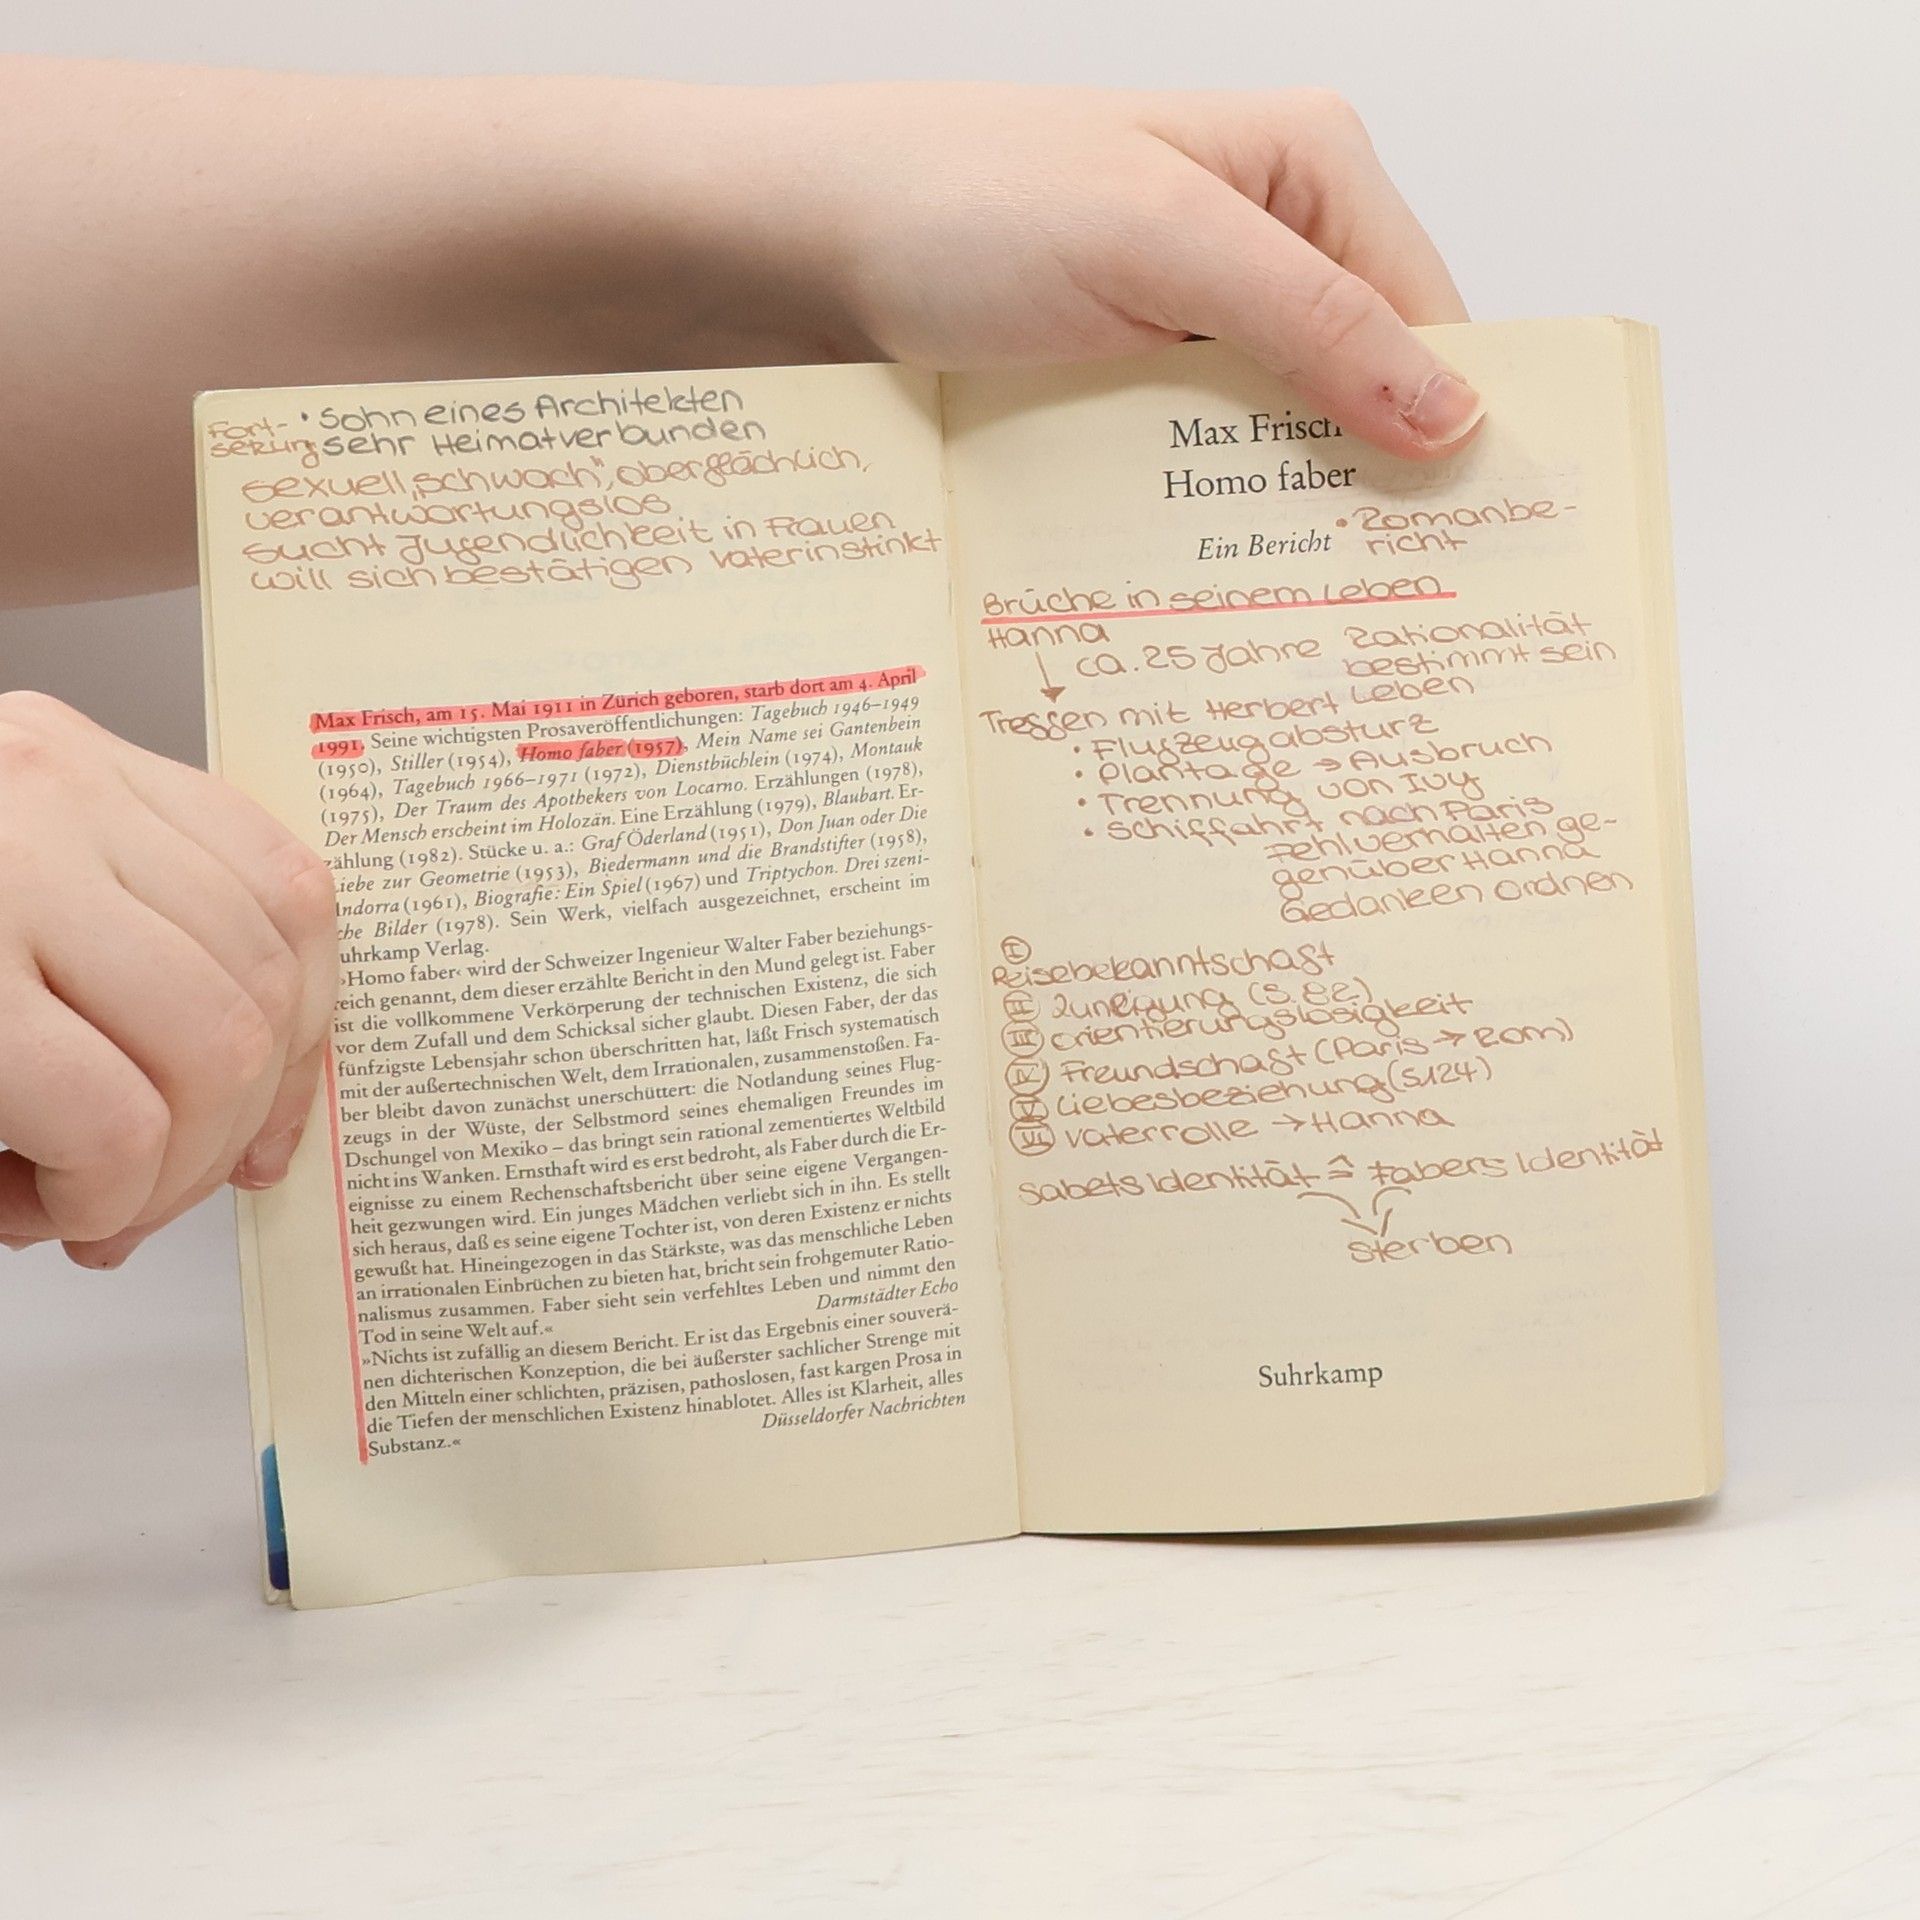 Fort-
setzung
• Sohn eines Architekten
sehr Heimatverbunden
sexuell „schwach", oberflächlich,
verantwortungslos
sucht Jugendlichkeit in Frauen
will sich bestätigen Vaterinstinkt
Max Frisch, am 15. Mai 1911 in Zürich geboren, starb dort am 4. April
1991. Seine wichtigsten Prosaveröffentlichungen: Tagebuch 1946–1949
(1950), Stiller (1954), Homo faber (1957), Mein Name sei Gantenbein
(1964), Tagebuch 1966–1971 (1972), Dienstbüchlein (1974), Montauk
(1975), Der Traum des Apothekers von Locarno. Erzählungen (1978),
Der Mensch erscheint im Holozän. Eine Erzählung (1979), Blaubart. Er-
zählung (1982). Stücke u. a.: Graf Öderland (1951), Don Juan oder Die
Liebe zur Geometrie (1953), Biedermann und die Brandstifter (1958),
Andorra (1961), Biografie: Ein Spiel (1967) und Triptychon. Drei szeni-
che Bilder (1978). Sein Werk, vielfach ausgezeichnet, erscheint im
uhrkamp Verlag.
»Homo faber‹ wird der Schweizer Ingenieur Walter Faber beziehungs-
reich genannt, dem dieser erzählte Bericht in den Mund gelegt ist. Faber
ist die vollkommene Verkörperung der technischen Existenz, die sich
vor dem Zufall und dem Schicksal sicher glaubt. Diesen Faber, der das
fünfzigste Lebensjahr schon überschritten hat, läßt Frisch systematisch
mit der außertechnischen Welt, dem Irrationalen, zusammenstoßen. Fa-
ber bleibt davon zunächst unerschüttert: die Notlandung seines Flug-
zeugs in der Wüste, der Selbstmord seines ehemaligen Freundes im
Dschungel von Mexiko – das bringt sein rational zementiertes Weltbild
nicht ins Wanken. Ernsthaft wird es erst bedroht, als Faber durch die Er-
eignisse zu einem Rechenschaftsbericht über seine eigene Vergangen-
heit gezwungen wird. Ein junges Mädchen verliebt sich in ihn. Es stellt
sich heraus, daß es seine eigene Tochter ist, von deren Existenz er nichts
gewußt hat. Hineingezogen in das Stärkste, was das menschliche Leben
an irrationalen Einbrüchen zu bieten hat, bricht sein frohgemuter Ratio-
nalismus zusammen. Faber sieht sein verfehltes Leben und nimmt den
Tod in seine Welt auf.«
Darmstädter Echo
»Nichts ist zufällig an diesem Bericht. Er ist das Ergebnis einer souverä-
nen dichterischen Konzeption, die bei äußerster sachlicher Strenge mit
den Mitteln einer schlichten, präzisen, pathoslosen, fast kargen Prosa in
die Tiefen der menschlichen Existenz hinablotet. Alles ist Klarheit, alles
Substanz.«
Düsseldorfer Nachrichten
Max Frisch
Homo faber
Ein Bericht
• Romanbe-
richt
Brüche in seinem Leben
Hanna
ca. 25 Jahre Rationalität
bestimmt sein
Leben
Treffen mit Herbert
• Flugzeugabsturz
• Plantage → Ausbruch
• Trennung von Ivy
• Schiffahrt nach Paris
Fehlverhalten ge-
genüber Hanna
Gedanken ordnen
I
Reisebekanntschaft
II Zuneigung (S. 82)
III Orientierungslosigkeit
IV Freundschaft (Paris → Rom)
V Liebesbeziehung (S124)
VI Vaterrolle → Hanna
Sabets Identität ≙ Fabers Identität
sterben
Suhrkamp